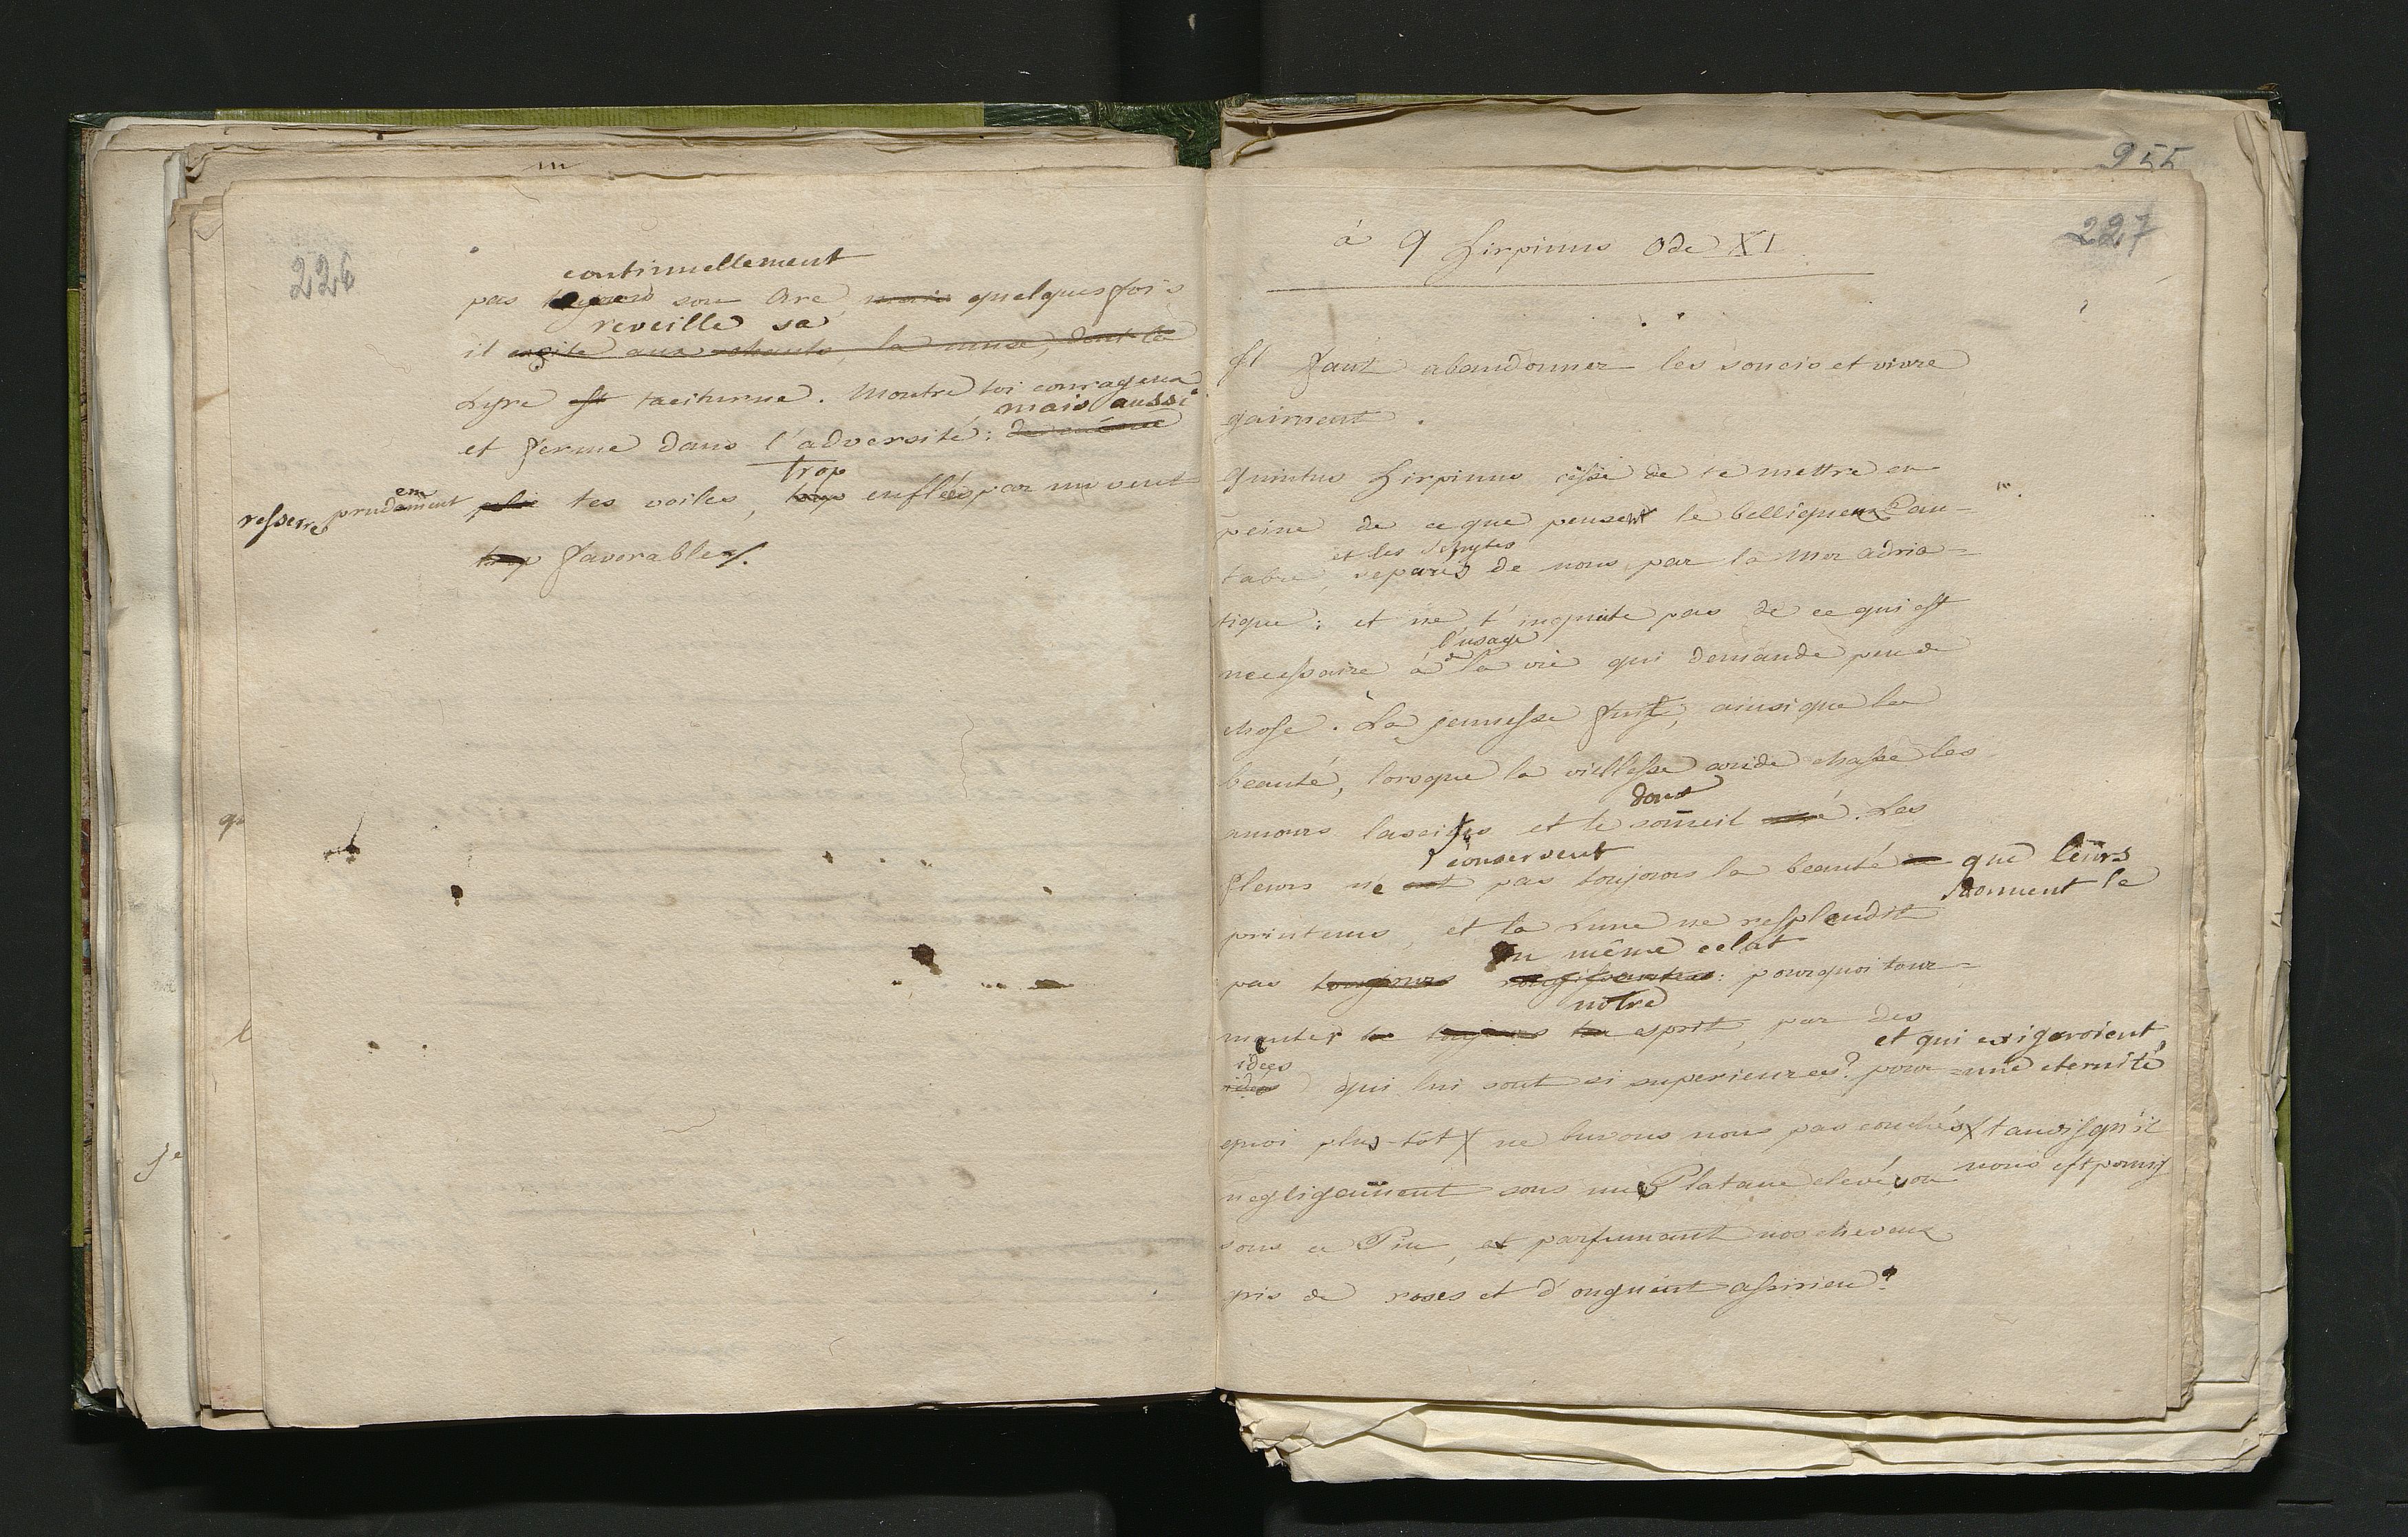 226
continuellement
pas toujours son Arc, mais quelques fois
reveille sa
il excite aux chants, la muse, dont la
Lyre est taciturne. Montre toi courageux
mais aussi
et ferme dans l'adversité: de même
trop
resserre prudemment plie tes voiles, trop enflées par un vent
trop favorable.
955
227
à Q hirpinus Ode XI
Il faut abandonner les soucis et vivre
gaiment.
Quintus hirpinus cesse de te mettre en
peine de ce que pensent le belliqueux Can-
et les Schytes
tabre, separés de nous par la Mer adria=
tique: et ne t'inquiete pas de ce qui est
l'usage
necessaire à de la vie qui demande peu de
chose. La jeunesse fuit, ainsi que la
beauté, lorsque la viellesse aride chasse les
doux
amours lascifs et le someil. Les
conservent
fleurs ne ont pas toujours la beauté que leurs
donnent le
printems, et la Lune ne resplendit
du même eclat
pas toujours: pourquoi tour=
notre
menter esprit, par des
et qui exigeroient
idées
idées qui lui sont si superieures? pour= une eternité
quoi plus-tôt X ne buvons nous pas couchés X tandis qu'il
nous est permis
negligament sous un Platane elevé, ou
sous ce Pin, et parfumant nos cheveux
gris de roses et d'onguent assirien?